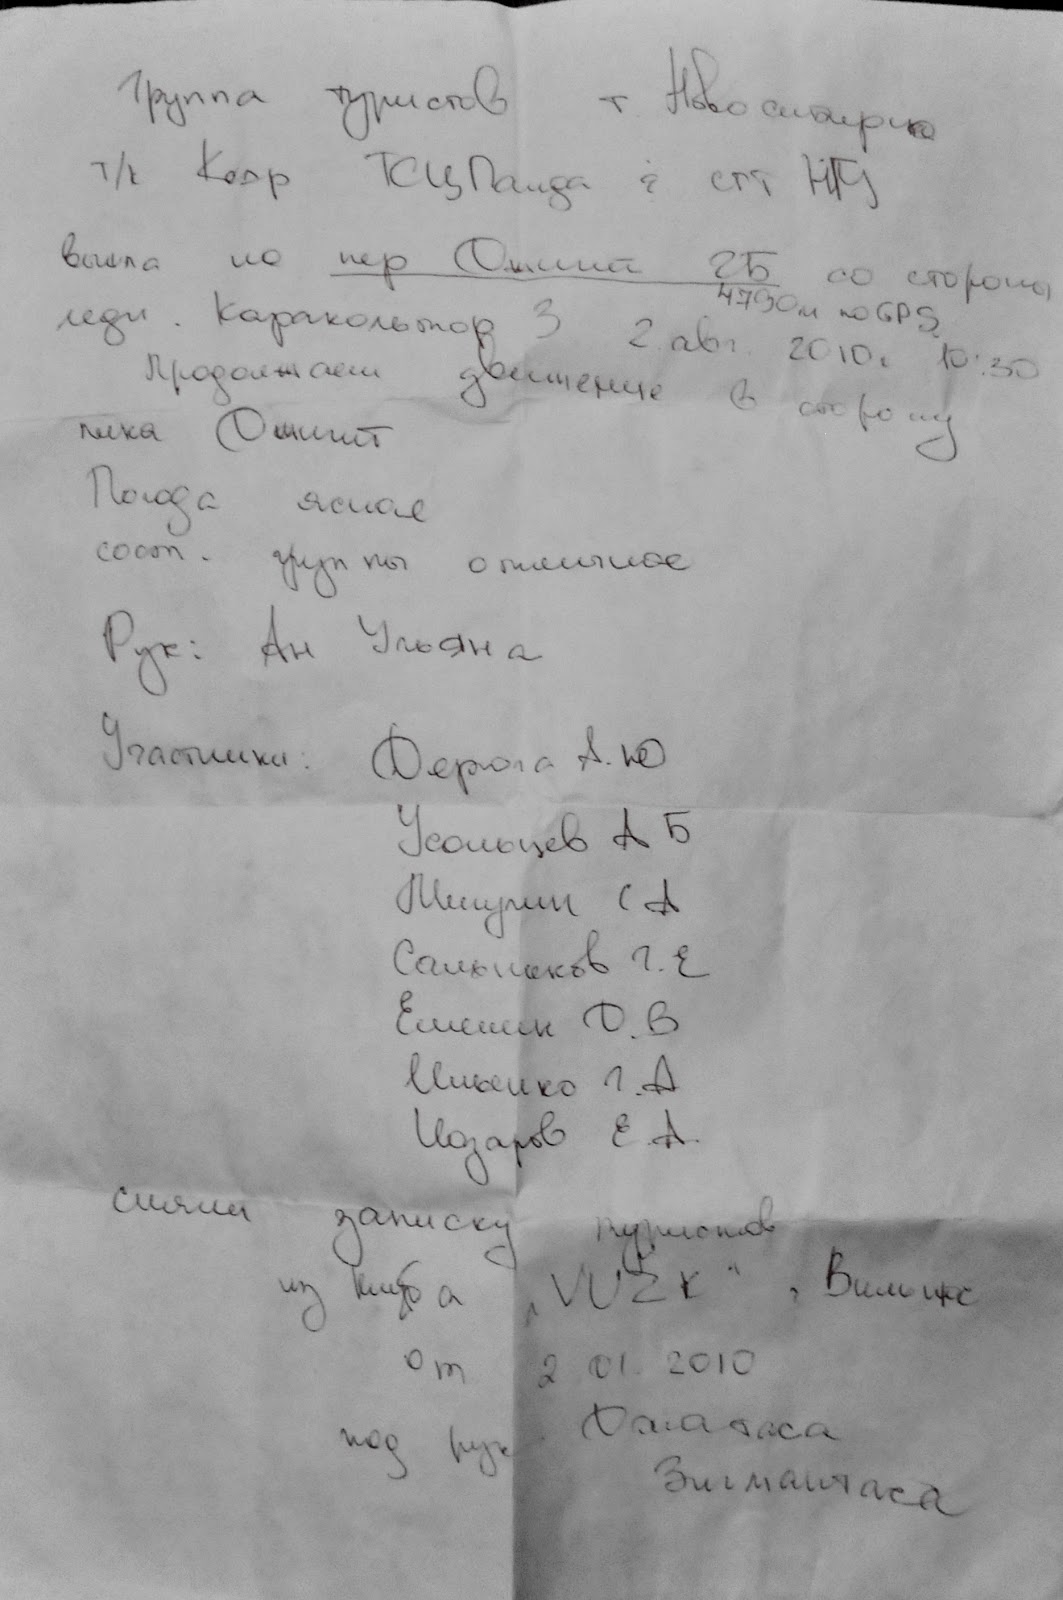 Группа туристов г. Новосибирска
т/к Кедр ТСЦ Панда и стт НГУ
вышла на пер Джигит 2Б со стороны
4790м по GPS
ледн. Каракольтор 3 2 авг. 2010г 10:30
Продолжаем движение в сторону
пика Джигит
Погода ясная
сост. группы отличное
Рук: Ан Ульяна
Участники: Дерюга А.Ю
Усольцев А Б
Мишулин С А
Сальников Г.Е
Елишин Д.В
Ильенко Г.А
Назаров Е.А.
сняли записку туристов
из клуба „VUŽK“, Вильнюс
от 2 01. 2010
под рук
Зигмантаса